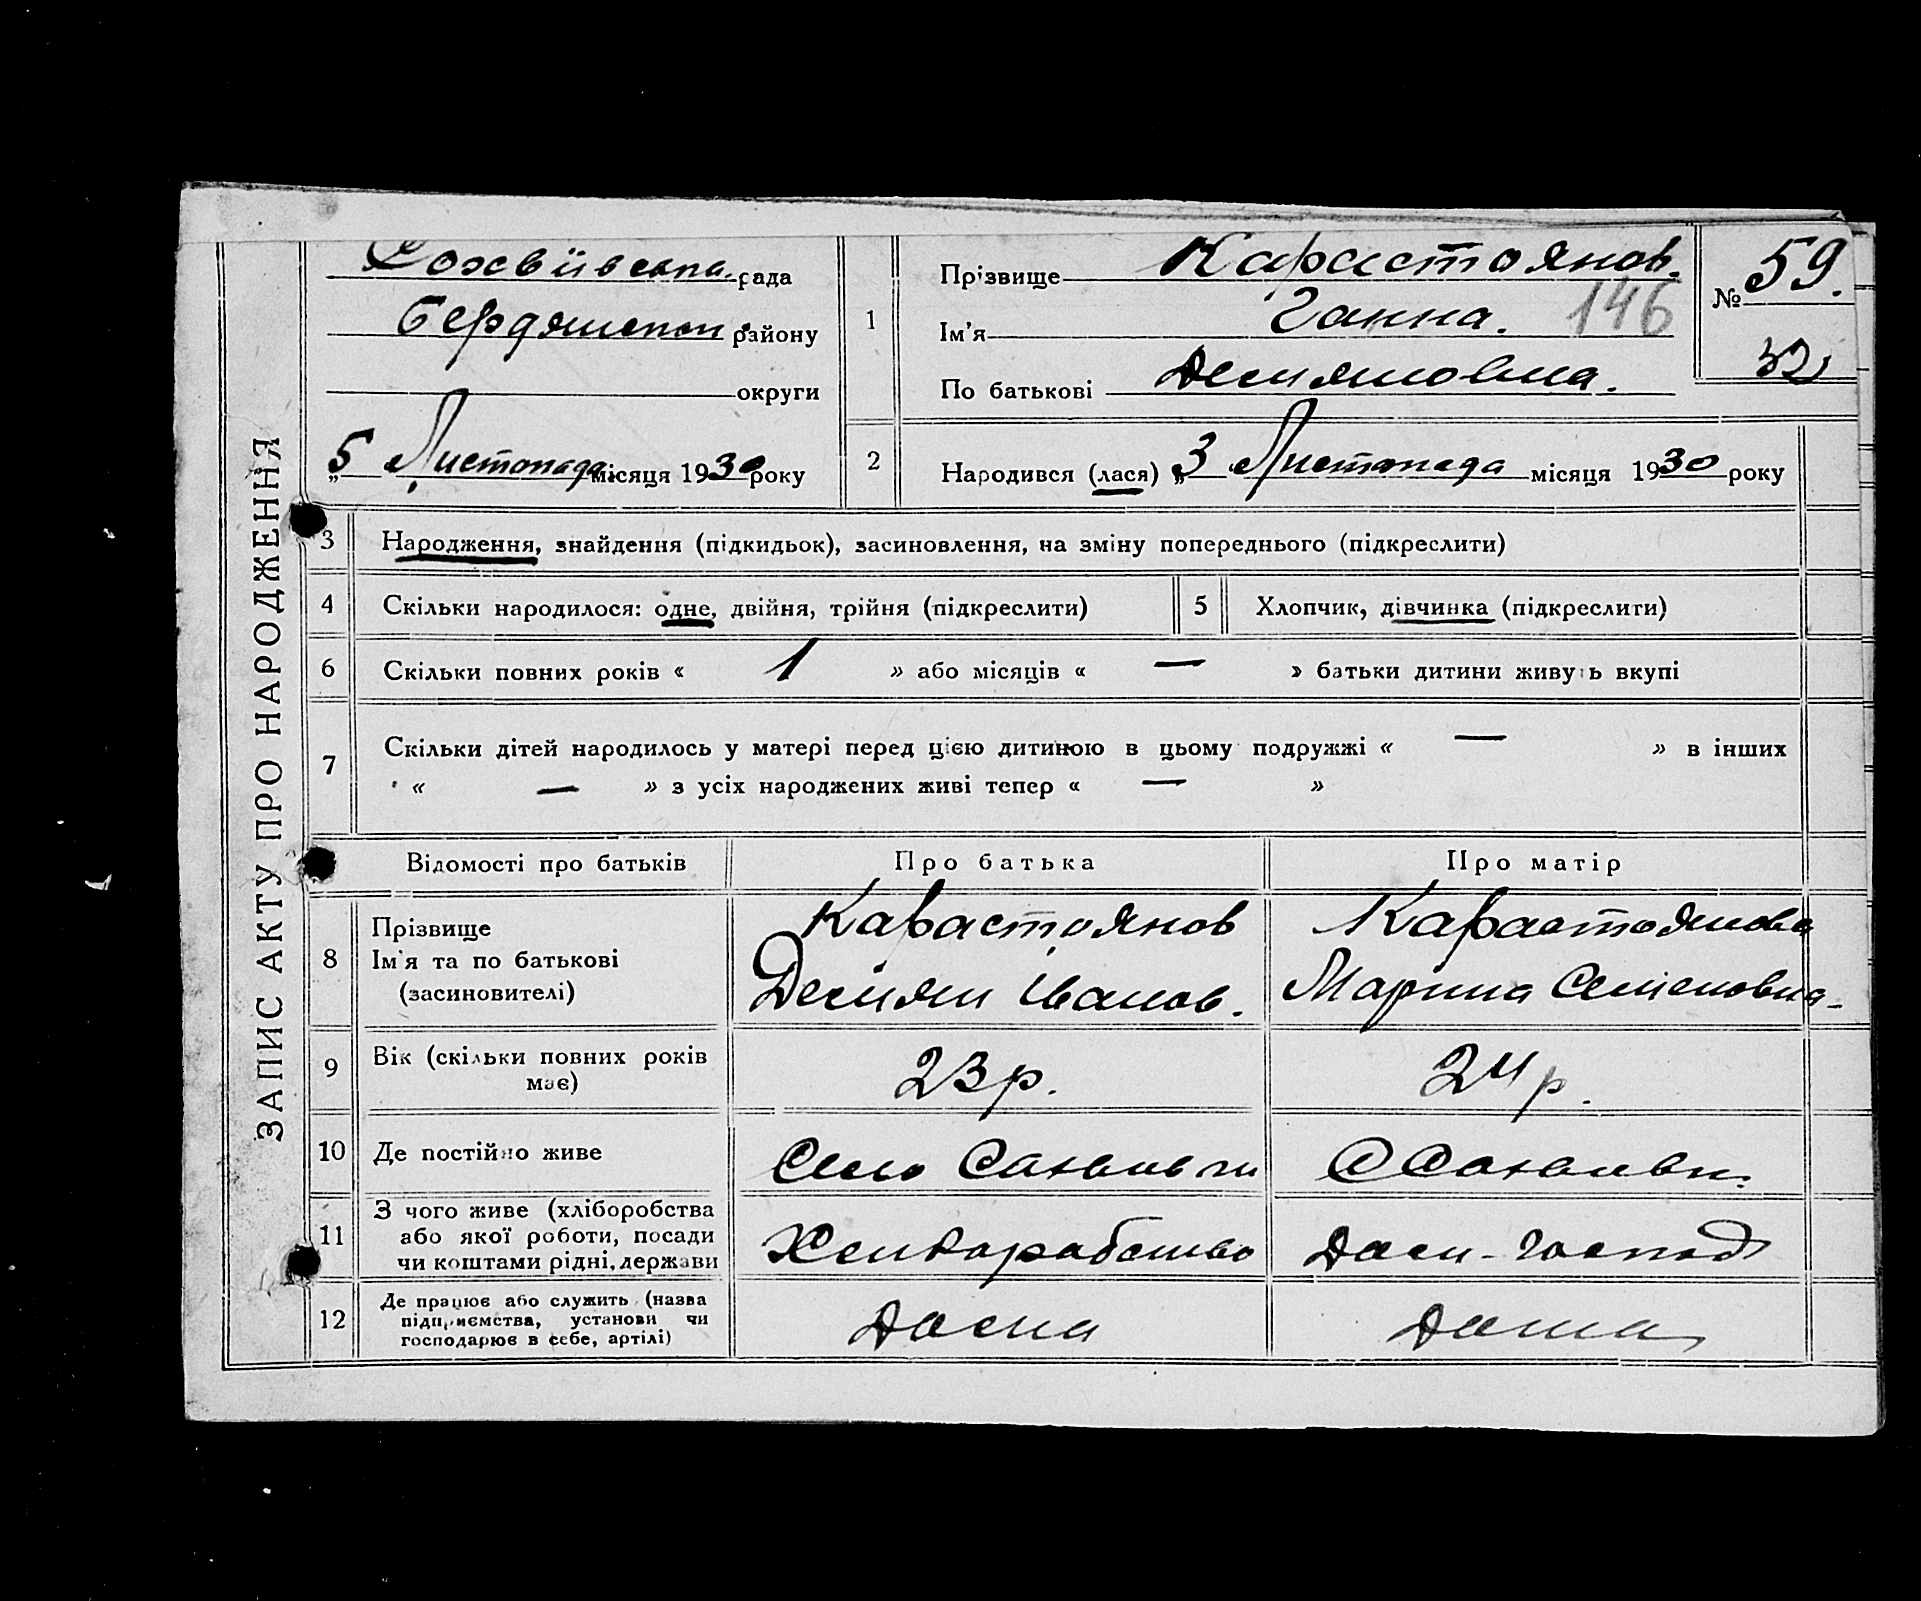 ЗАПИС АКТУ ПРО НАРОДЖЕННЯ
рада
району
округи
„5 Листопада місяця 1930 року
1
Прізвище Карастоянов.
Ім'я Ганна. 146
По батькові
№ 59.
32
2
Народився (лася) „3 Листопада місяця 1930 року
3 Народження, знайдення (підкидьок), засиновлення, на зміну попереднього (підкреслити)
4 Скільки народилося: одне, двійня, трійня (підкреслити)
5 Хлопчик, дівчинка (підкреслити)
6 Скільки повних років « 1 » або місяців « — » батьки дитини живуть вкупі
7 Скільки дітей народилось у матері перед цією дитиною в цьому подружжі « — » в інших
« — » з усіх народжених живі тепер « — »
Відомості про батьків Про батька Про матір
8 Прізвище
Ім'я та по батькові
(засиновителі)
Карастоянов
Іванов.
Карастоянова
Марина Семеновна
9 Вік (скільки повних років
має)
23 р.
24 р.
10 Де постійно живе
Село
11 З чого живе (хліборобства
або якої роботи, посади
чи коштами рідні, держави
Дом-господ
12 Де працює або служить (назва
підприємства, установи чи
господарює в себе, артілі)